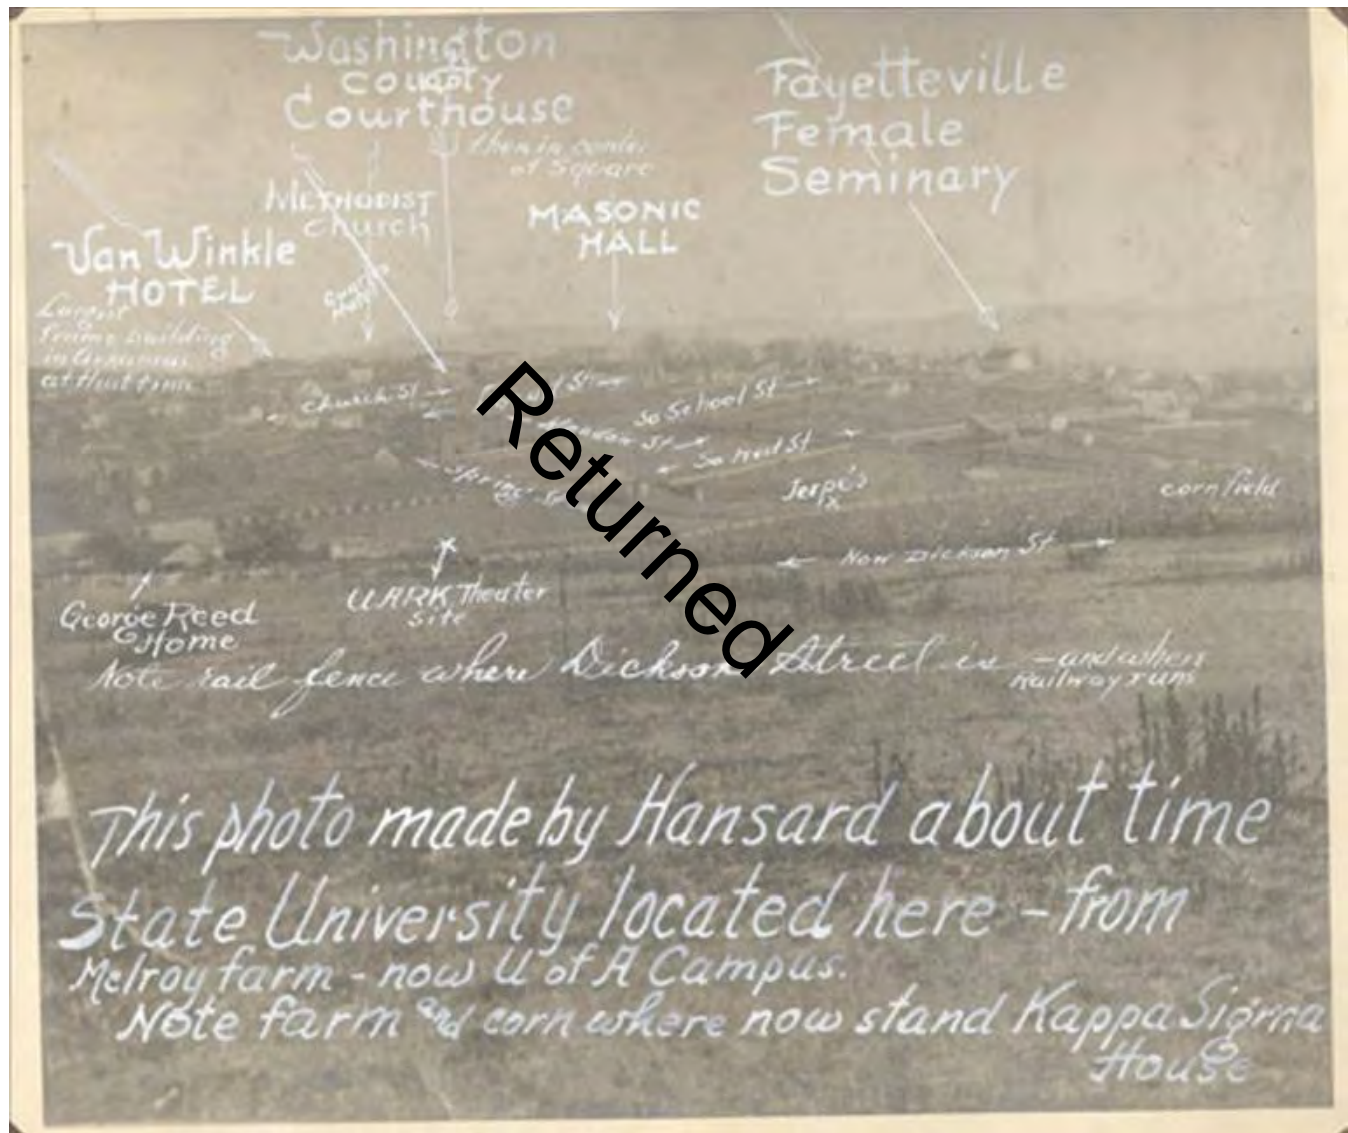 Washington
County
Courthouse
then in center
of Square
Fayetteville
Female
Seminary
METHODIST
Church
MASONIC
HALL
Van Winkle
HOTEL
Largest
frame building
in Arkansas
at that time
Church St
St
So School St
St
So West St
Spring St
Jerpe's
cornfield
Now Dickson St
George Reed
Home
UARK Theater
Site
Note rail fence where Dickson Street is - and where
Railway runs
Returned
This photo made by Hansard about time
State University located here - from
McIroy farm - now U of A Campus.
Note farm and corn where now stand Kappa Sigma
House